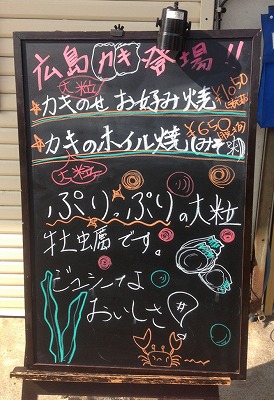 広島カキ登場!!
大粒
☆カキのせお好み焼 ¥1050
☆カキのホイル焼 ¥650
大粒
ぷりっぷりの大粒
牡蛎です。
ジューシーな
おいしさ